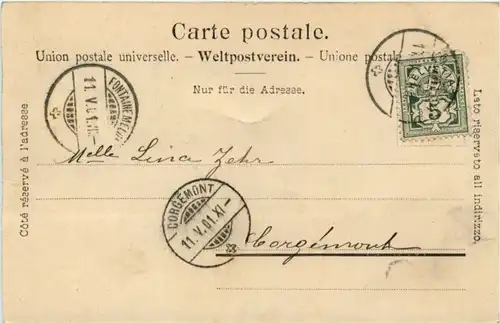 Carte postale.
Union postale universelle. – Weltpostverein. – Unione postale
Nur für die Adresse.
Côté réservé à l'adresse
Lato riservato all indirizzo.
11.V.01.XI–
HELVETIA
5
Melle Lina Zehr
CORGÉMONT
11.V.01.XI–
Corgémont